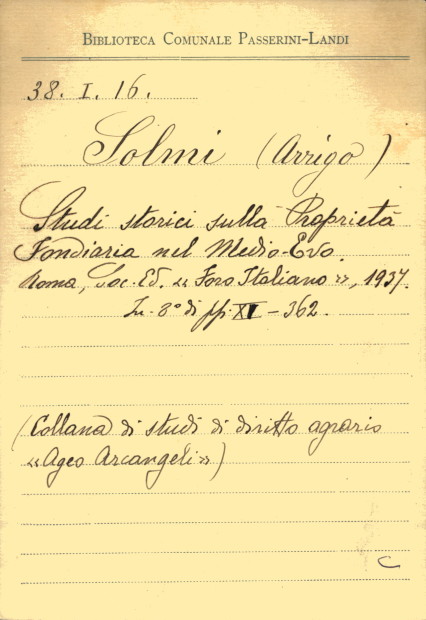 BIBLIOTECA COMUNALE PASSERINI-LANDI
38. I. 16.
Solmi (Arrigo)
Studi storici sulla Proprietà
Fondiaria nel Medio-Evo.
Roma, Soc. Ed. « Foro Italiano », 1937.
In-8° di pp. XV-362.
(Collana di studi di diritto agrario
«Ageo Arcangeli»)
C